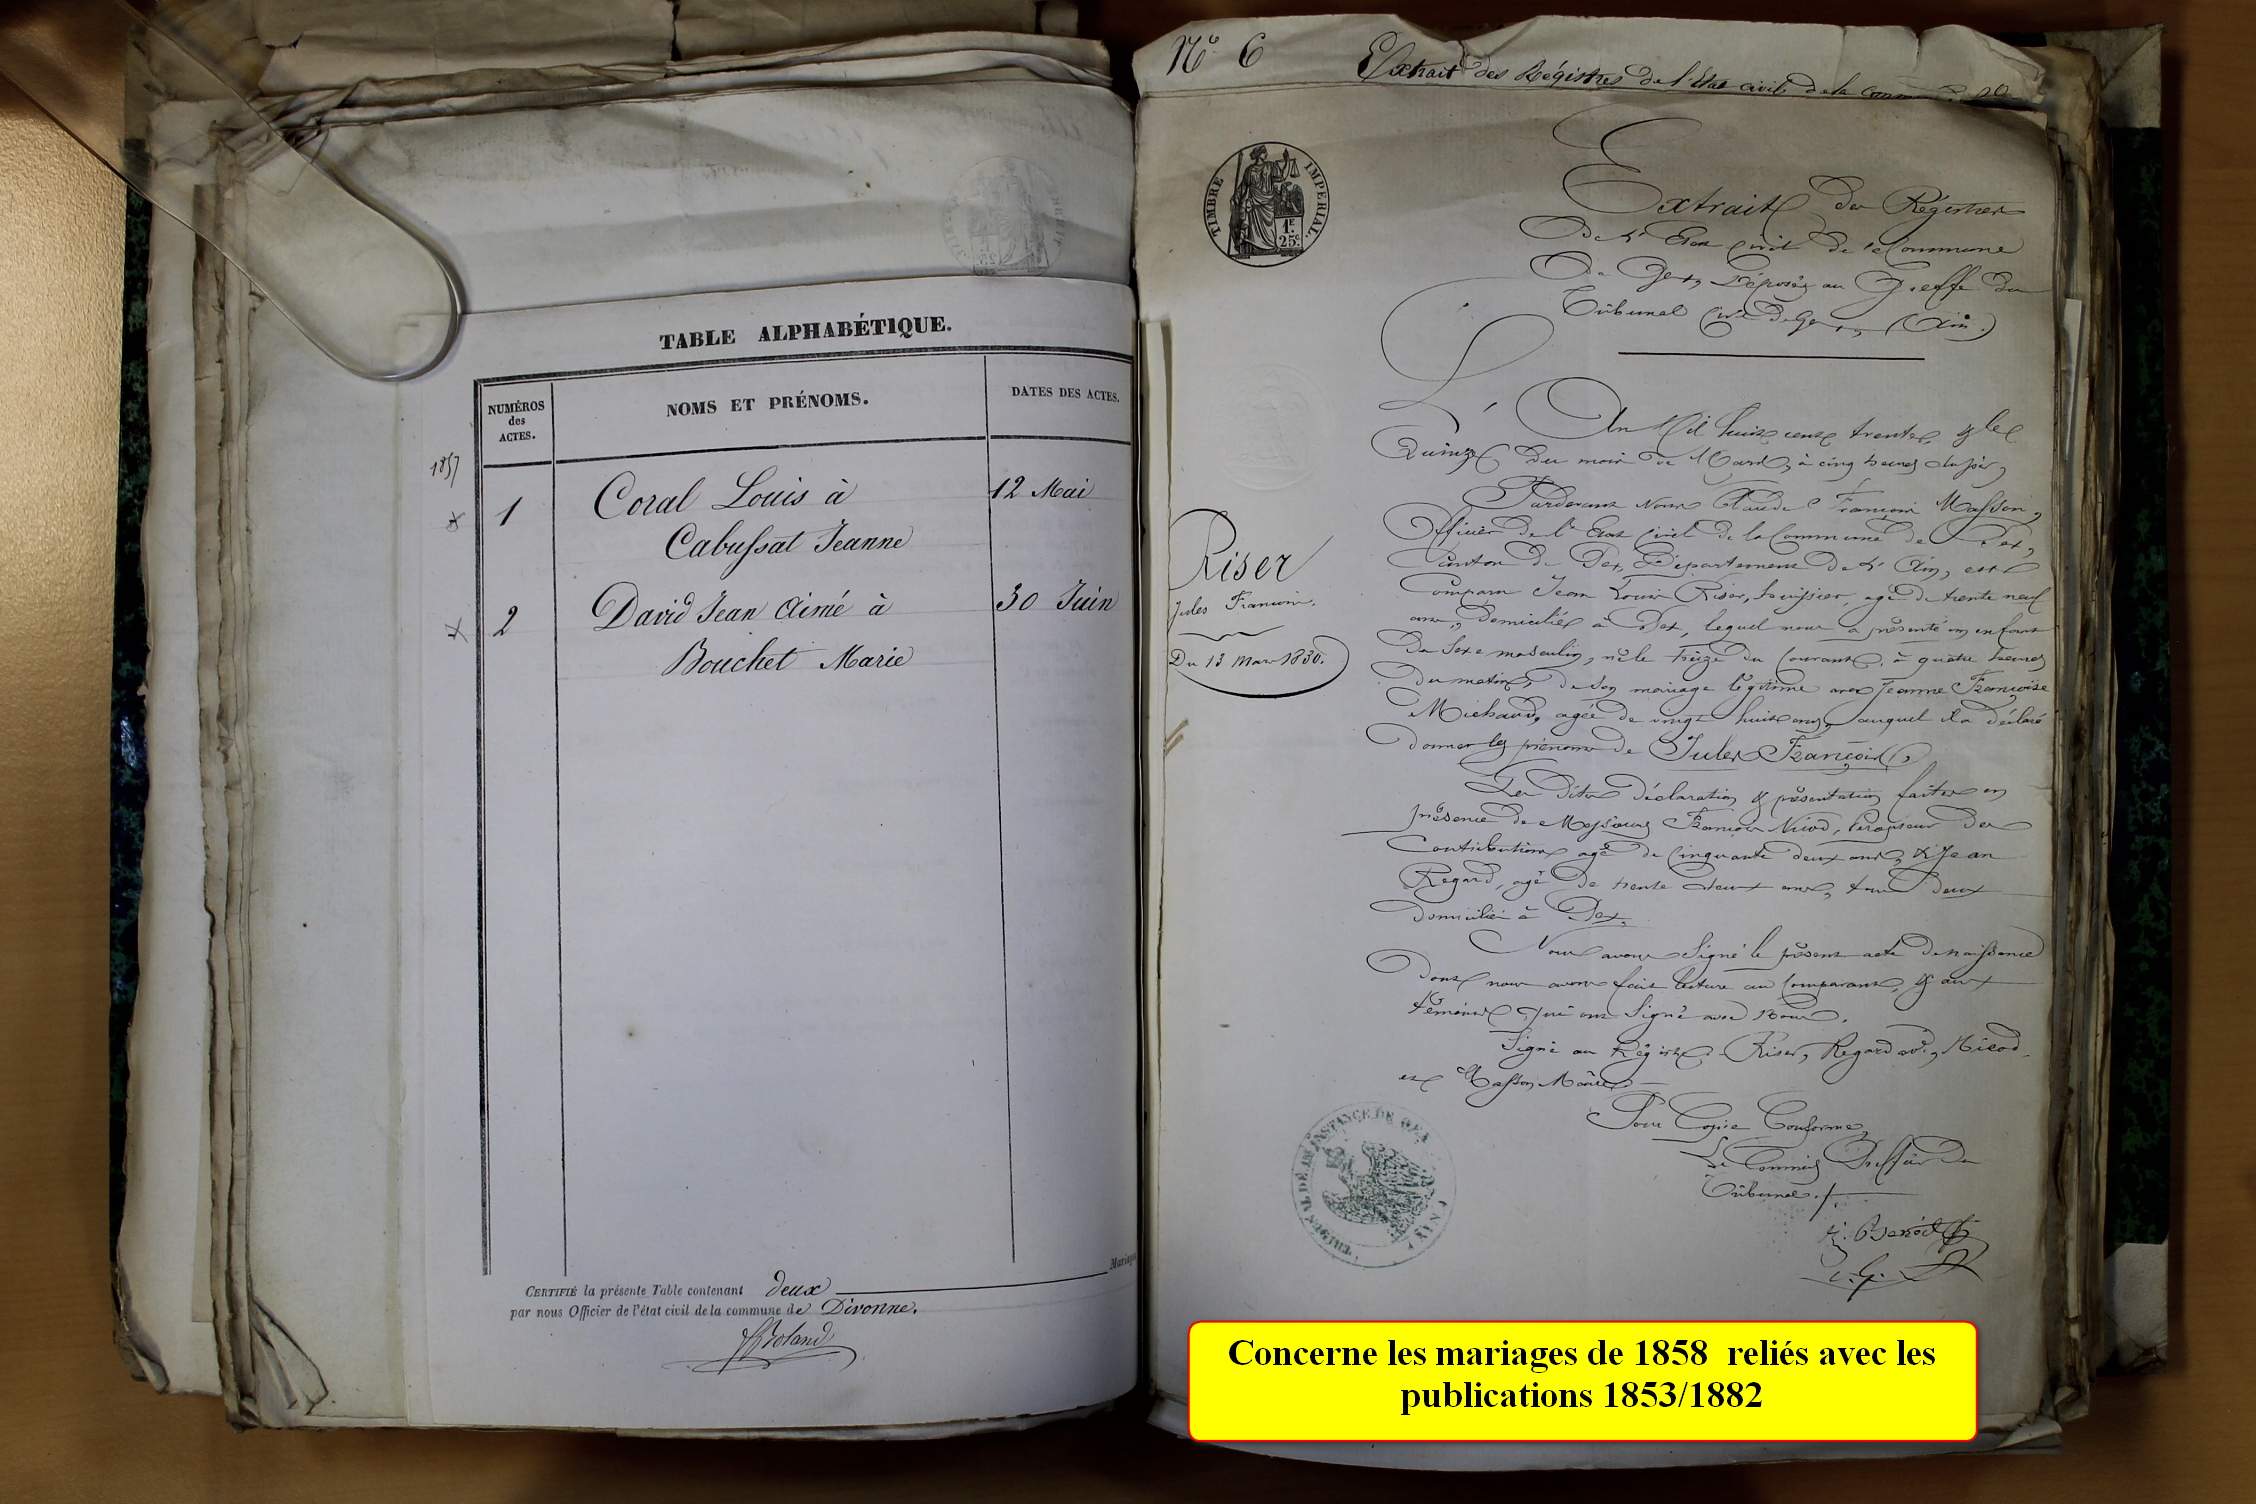 TABLE ALPHABÉTIQUE.
NUMÉROS
des
ACTES.
NOMS ET PRÉNOMS.
DATES DES ACTES.
1857
1 Coral Louis à 12 Mai
Cabussat Jeanne
2 David Jean Aimé à 30 Juin
Bouchet Marie
Mariages
CERTIFIÉ la présente Table contenant deux
par nous Officier de l'état civil de la commune de Divonne.
Roland
N° 6 Extrait des Régistres de l'Etat civil de la
TIMBRE IMPÉRIAL.
1F.
25c.
Extrait des Régistres
De l'Etat Civil de la Commune
De Gex, Déposés au Greffe du
Tribunal Civil de Gex, (Ain.)
Riser
Jules François.
Du 13 Mars 1830.
L'An Mil huit cent trente, & le
Quinze du mois de Mars, à cinq heures du soir,
Pardevant Nous Claude François Masson,
Officier de l'Etat Civil de la Commune de Gex,
Canton de Gex, Département de l'Ain, est
Comparu Jean Louis Riser, huissier, agé de trente neuf
ans, Domicilié à Gex, lequel nous a présenté un enfant
Du Sexe masculin, né le treize du Courant, à quatre heures
du matin, de son mariage légitime avec Jeanne Françoise
Michaud, agée de vingt huit ans, auquel il a déclaré
donner les prénoms de Jules François,
Les Dites déclaration & présentation faites en
présence de Messieurs François Nicod, Percepteur des
Contributions agé de Cinquante deux ans, & Jean
Regard, agé de trente deux ans, tous deux
domiciliés à Gex,
Nous avons Signé le présent acte de naissance
Dont nous avons fait lecture au Comparant, & aux
témoins qui ont Signé avec Nous.
Signé au Régistre, Riser, Regard, Nicod
et Masson, Maire
Pour Copie Conforme,
Le Commis Greffier du
Tribunal.
Benoit
TRIBUNAL DE 1re INSTANCE DE GEX
(AIN)
Concerne les mariages de 1858 reliés avec les
publications 1853/1882